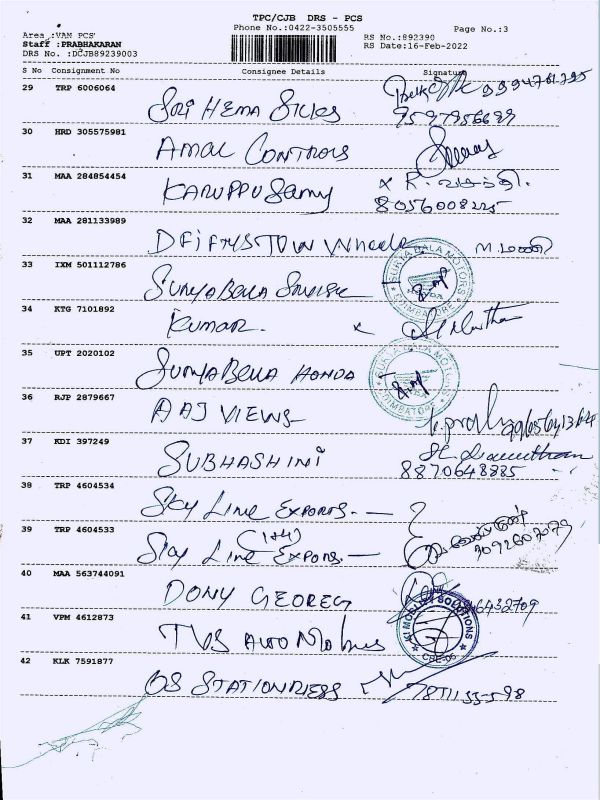 TPC/CJB DRS - PCS
Phone No.:0422-3505555
Page No.:3
Area :VAM PCS'
Staff :PRABHAKARAN
DRS No. :DCJB89239003
RS No.:892390
RS Date:16-Feb-2022
S No Consignment No Consignee Details Signature
29 TRP 6006064 SRI HEMA SILKS
9597956689
30 HRD 305575981 AMAL CONTROLS
31 MAA 284854454 KARUPPUSAMY x R. வசந்தி.
8056008225
32 MAA 281133989 Wheels M. மணி
33 IXM 501112786 SURYA BALA
SURYA BALA MOTORS
COIMBATORE
34 KTG 7101892 KUMAR. x
35 UPT 2020102 SURYA BALA HONDA
SURYA BALA MOTORS
COIMBATORE
36 RJP 2879667 AAJ VIEWS
37 KDI 397249 SUBHASHINI
8870648885
38 TRP 4604534 SKY LINE EXPORTS. —
39 TRP 4604533 SKY LINE EXPORTS. —
(1+4)
9092607079
40 MAA 563744091 DONY GEOREG
41 VPM 4612873 TVS AUTO Mobiles
KI MOBILITY SOLUTIONS
CBE-06
42 KLK 7591877 GS STATIONRIESS